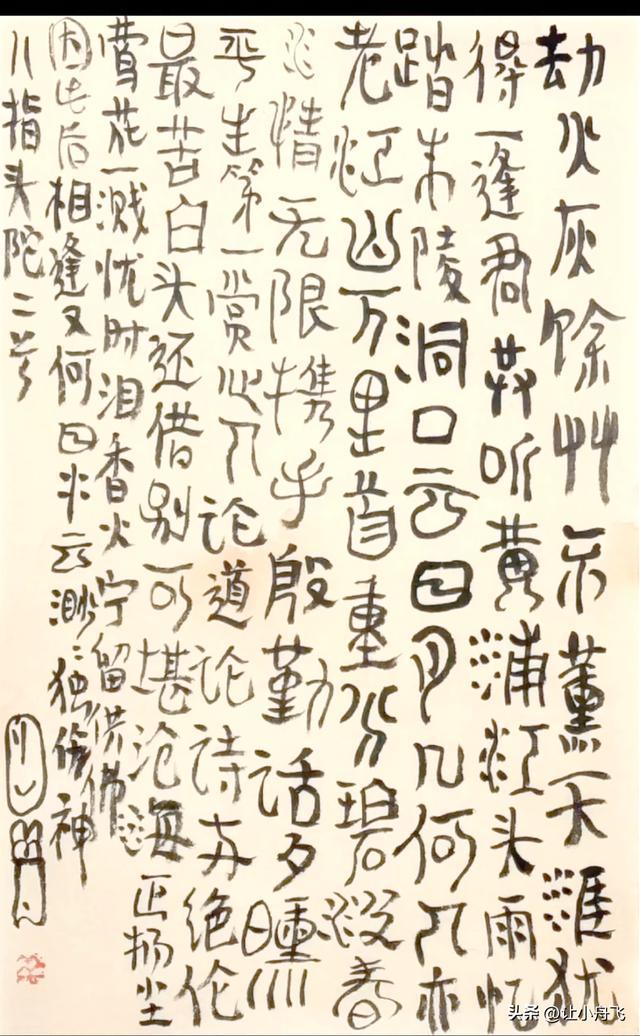 劫火灰馀艸不薰天涯犹
得一逢君共听黄浦江头雨忆
踏朱陵洞口云日月几何人亦
老江山万里首重分碧波春
水情无限携手殷勤话夕曛
平生第一赏心人论道论诗两绝伦
最苦白头还借别可堪沧海正扬尘
莺花一溅忧时泪香火宁留供佛
因此后相逢又何日水云渺渺独伤神
八指头陀二
头条 @让小舟飞